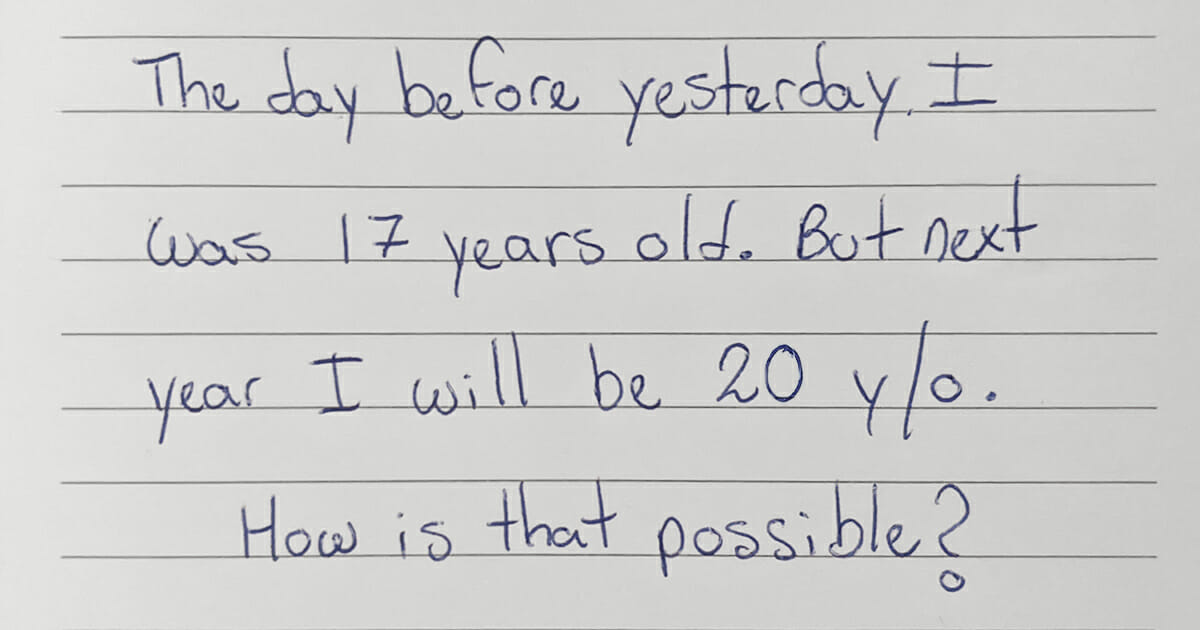 The day before yesterday, I
was 17 years old. But next
year I will be 20 y/o.
How is that possible?